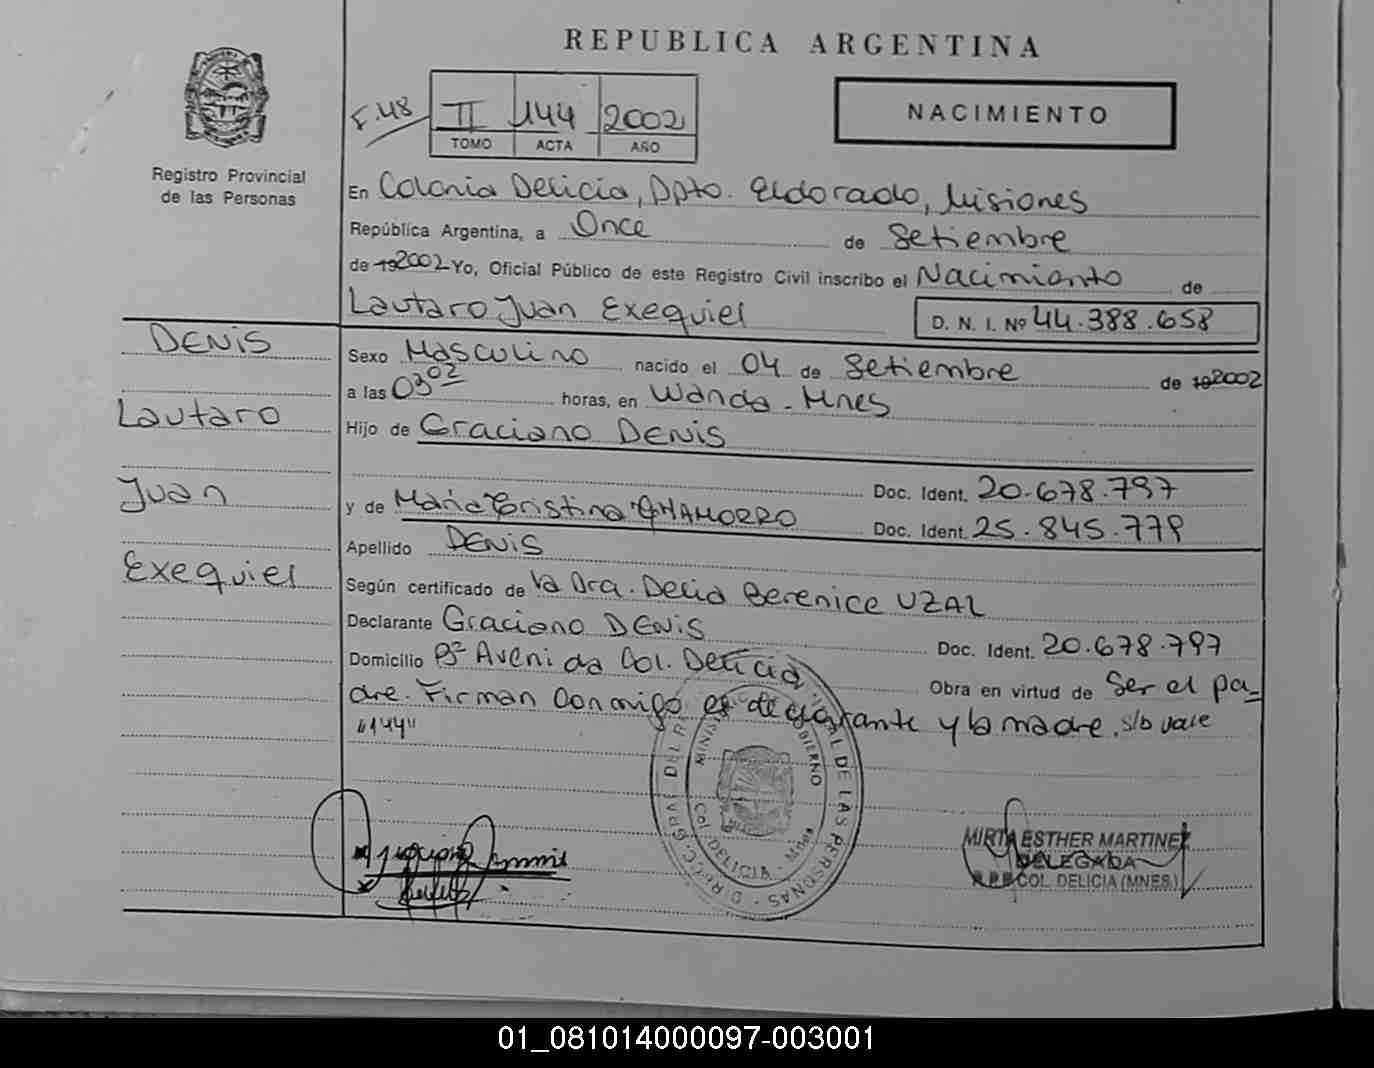 REPUBLICA ARGENTINA
F. 48
II 144 2002
TOMO ACTA AÑO
NACIMIENTO
Registro Provincial
de las Personas
En Colonia Delicia, Dpto. Eldorado, Misiones
República Argentina, a Once de Setiembre
de 192002 Yo, Oficial Público de este Registro Civil inscribo el Nacimiento de
Lautaro Juan Exequiel D. N. I. Nº 44.388.658
DENIS
Lautaro
Juan
Exequiel
Sexo Masculino nacido el 04 de Setiembre de 192002
a las 03 02 horas, en Wanda - Mnes
Hijo de Graciano DENIS
Doc. Ident. 20.678.797
y de María Cristina CHAMORRO Doc. Ident. 25.845.779
Apellido DENIS
Según certificado de la Dra. Delia Berenice UZAL
Declarante Graciano DENIS Doc. Ident. 20.678.797
Domicilio Avenida Col. Delicia Obra en virtud de Ser el pa-
dre. Firman Conmigo el declarante y la madre. s/b vale
"144"
DIREC. GRAL DEL REG. DE LAS PERSONAS
MINISTERIO GOBIERNO
Col. DELICIA - Mnes
MIRTA ESTHER MARTINEZ
DELEGADA
R.P.P. COL. DELICIA (MNES.)
01_081014000097-003001